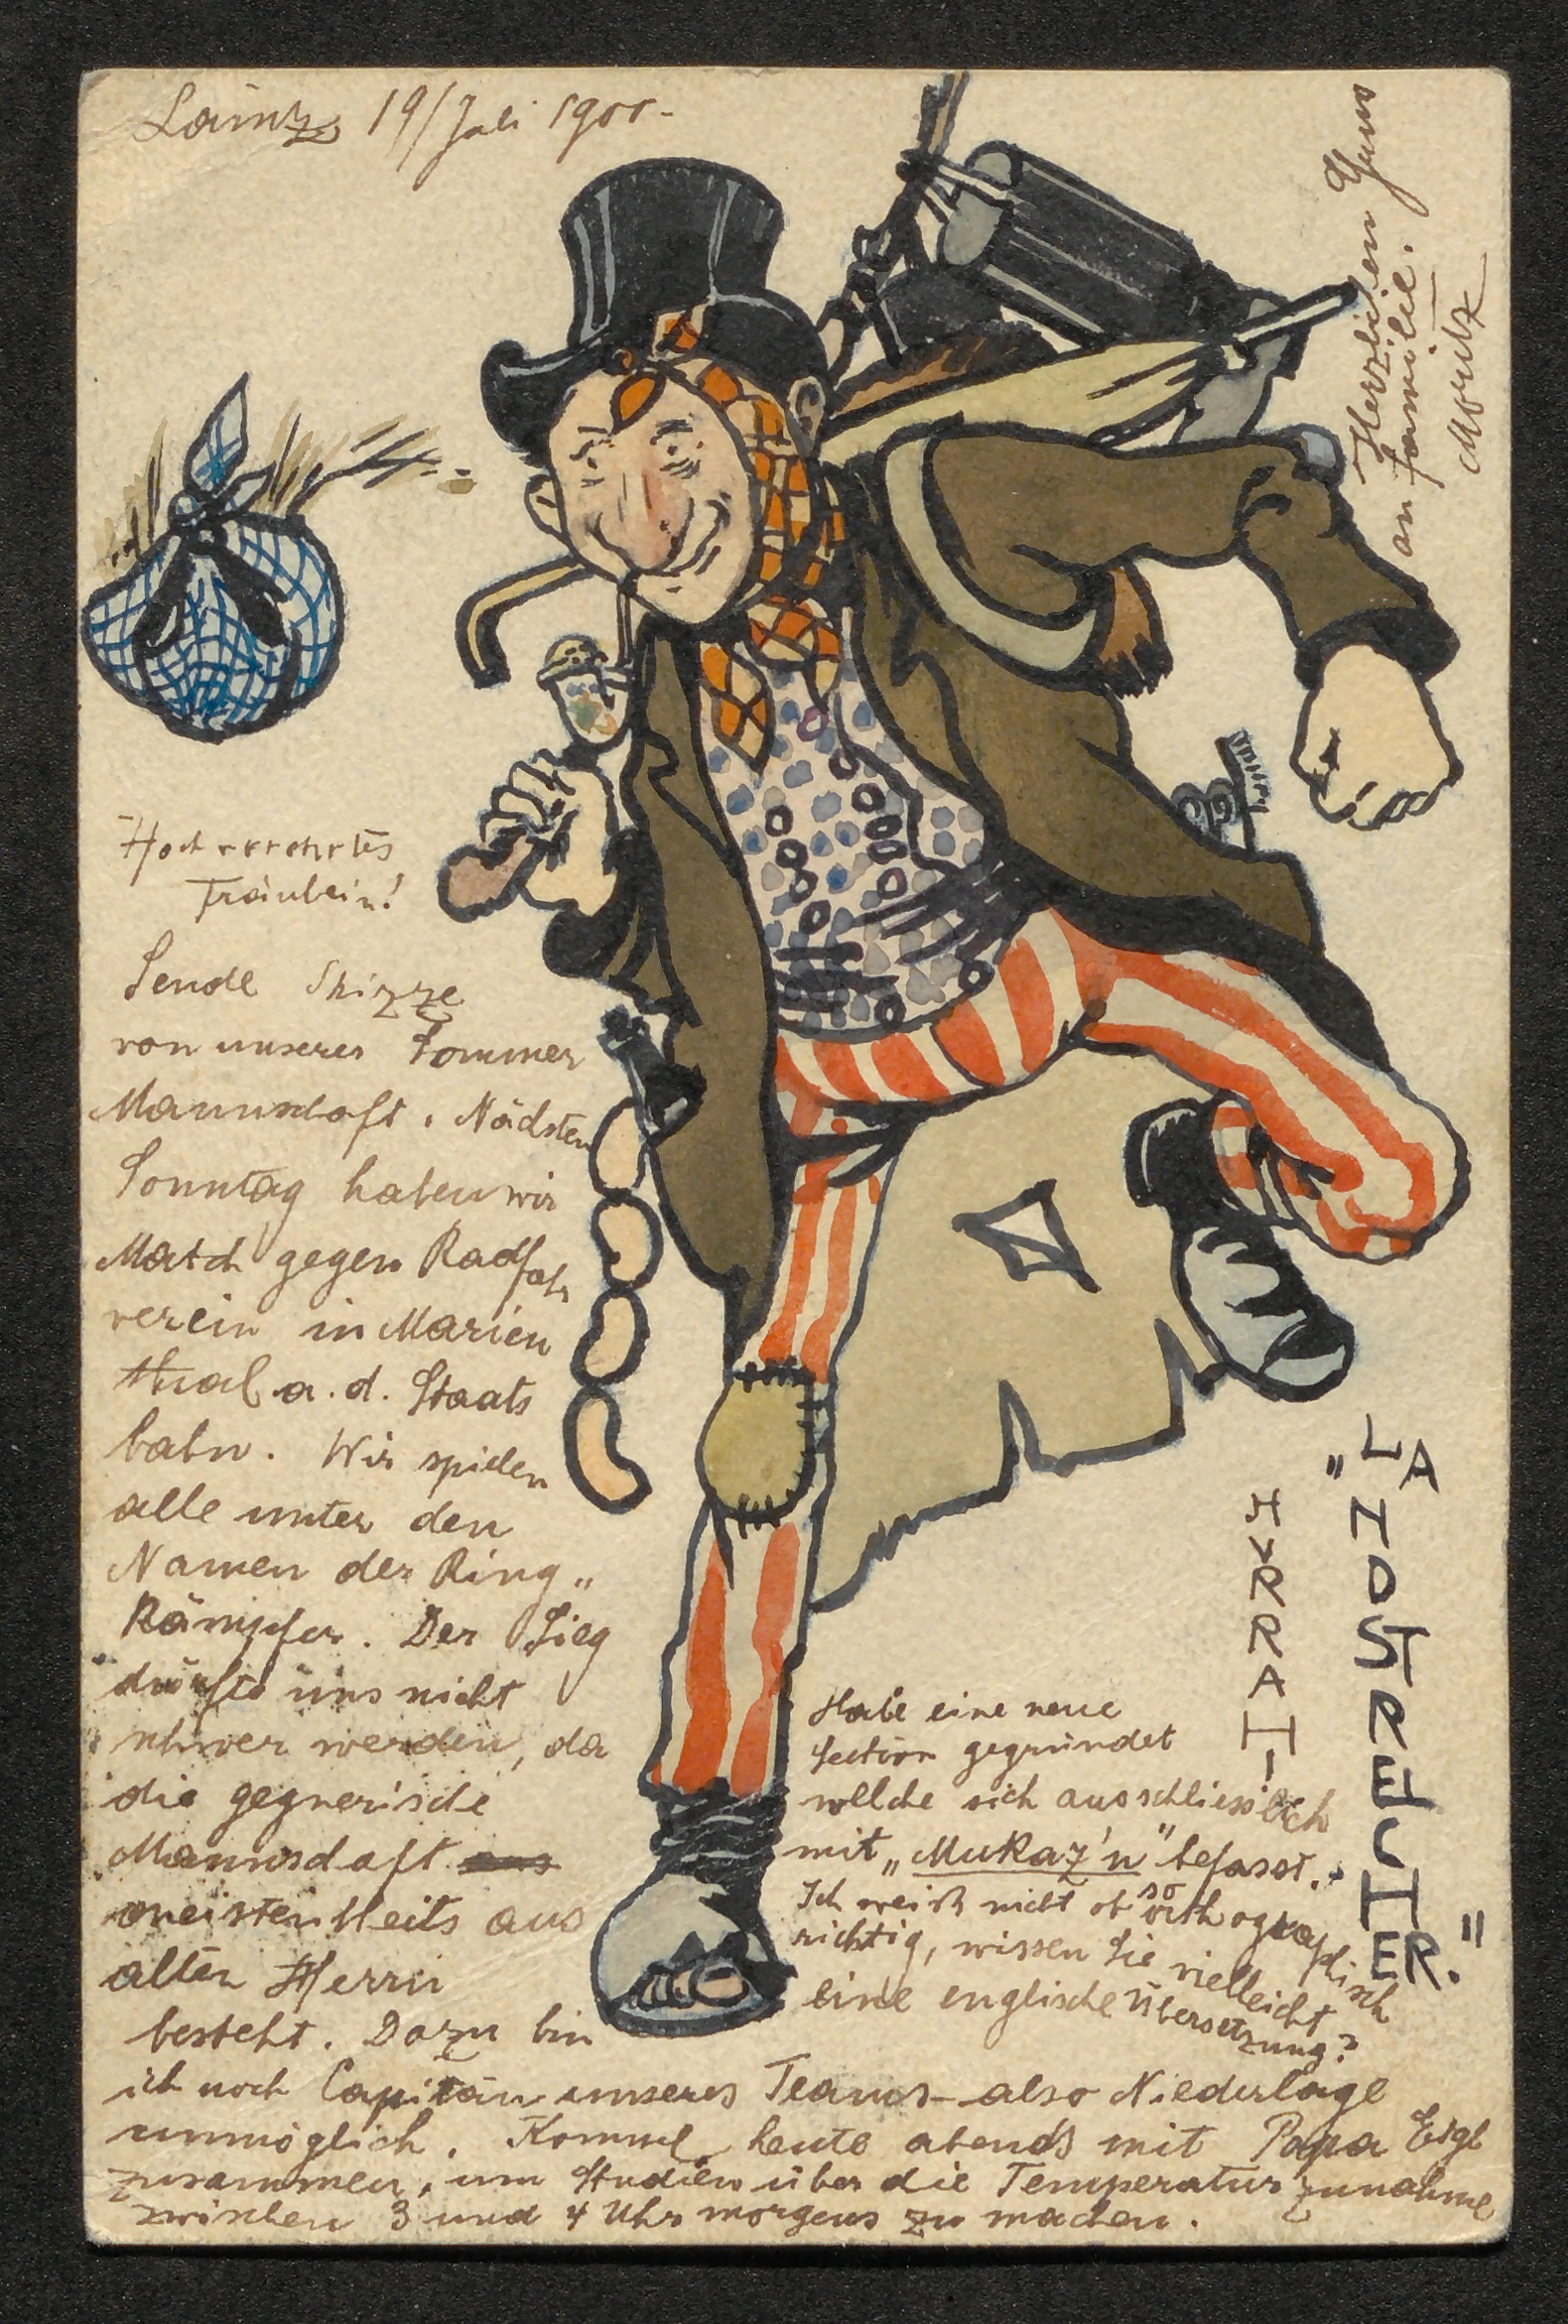 Lainz, 19/Juli 1900.
Hochverehrtes
Fräulein!
Sende Skizze
von unserer Sommer
Mannschaft. Nächsten
Sonntag haben wir
Match gegen Radfahr
verein in Marien
thal a. d. Staats
bahn. Wir spielen
alle unter den
Namen der Ring„
Kämpfer. Der Sieg
dürfte uns nicht
schwer werden, da
die gegnerische
Mannschaft aus
meistentheils aus
alten Herrn
besteht. Dazu bin
ich noch Capitän unseres Teams - also Niederlage
unmöglich. Komme heute abends mit Papa Eigl
zusammen, um Studien über die Temperatur zunahme
zwischen 3 und 4 Uhr morgens zu machen.
Habe eine neue
Section gegründet
welche sich ausschliesslich
mit „Mukaz'n" befasst.
Ich weiß nicht ob so orthographisch
richtig, wissen Sie vielleicht
eine englische Übersetzung?
HURRAH!
„LA
HDSTREICHER."
Herzlichen Gruss
an Familie.
Moritz